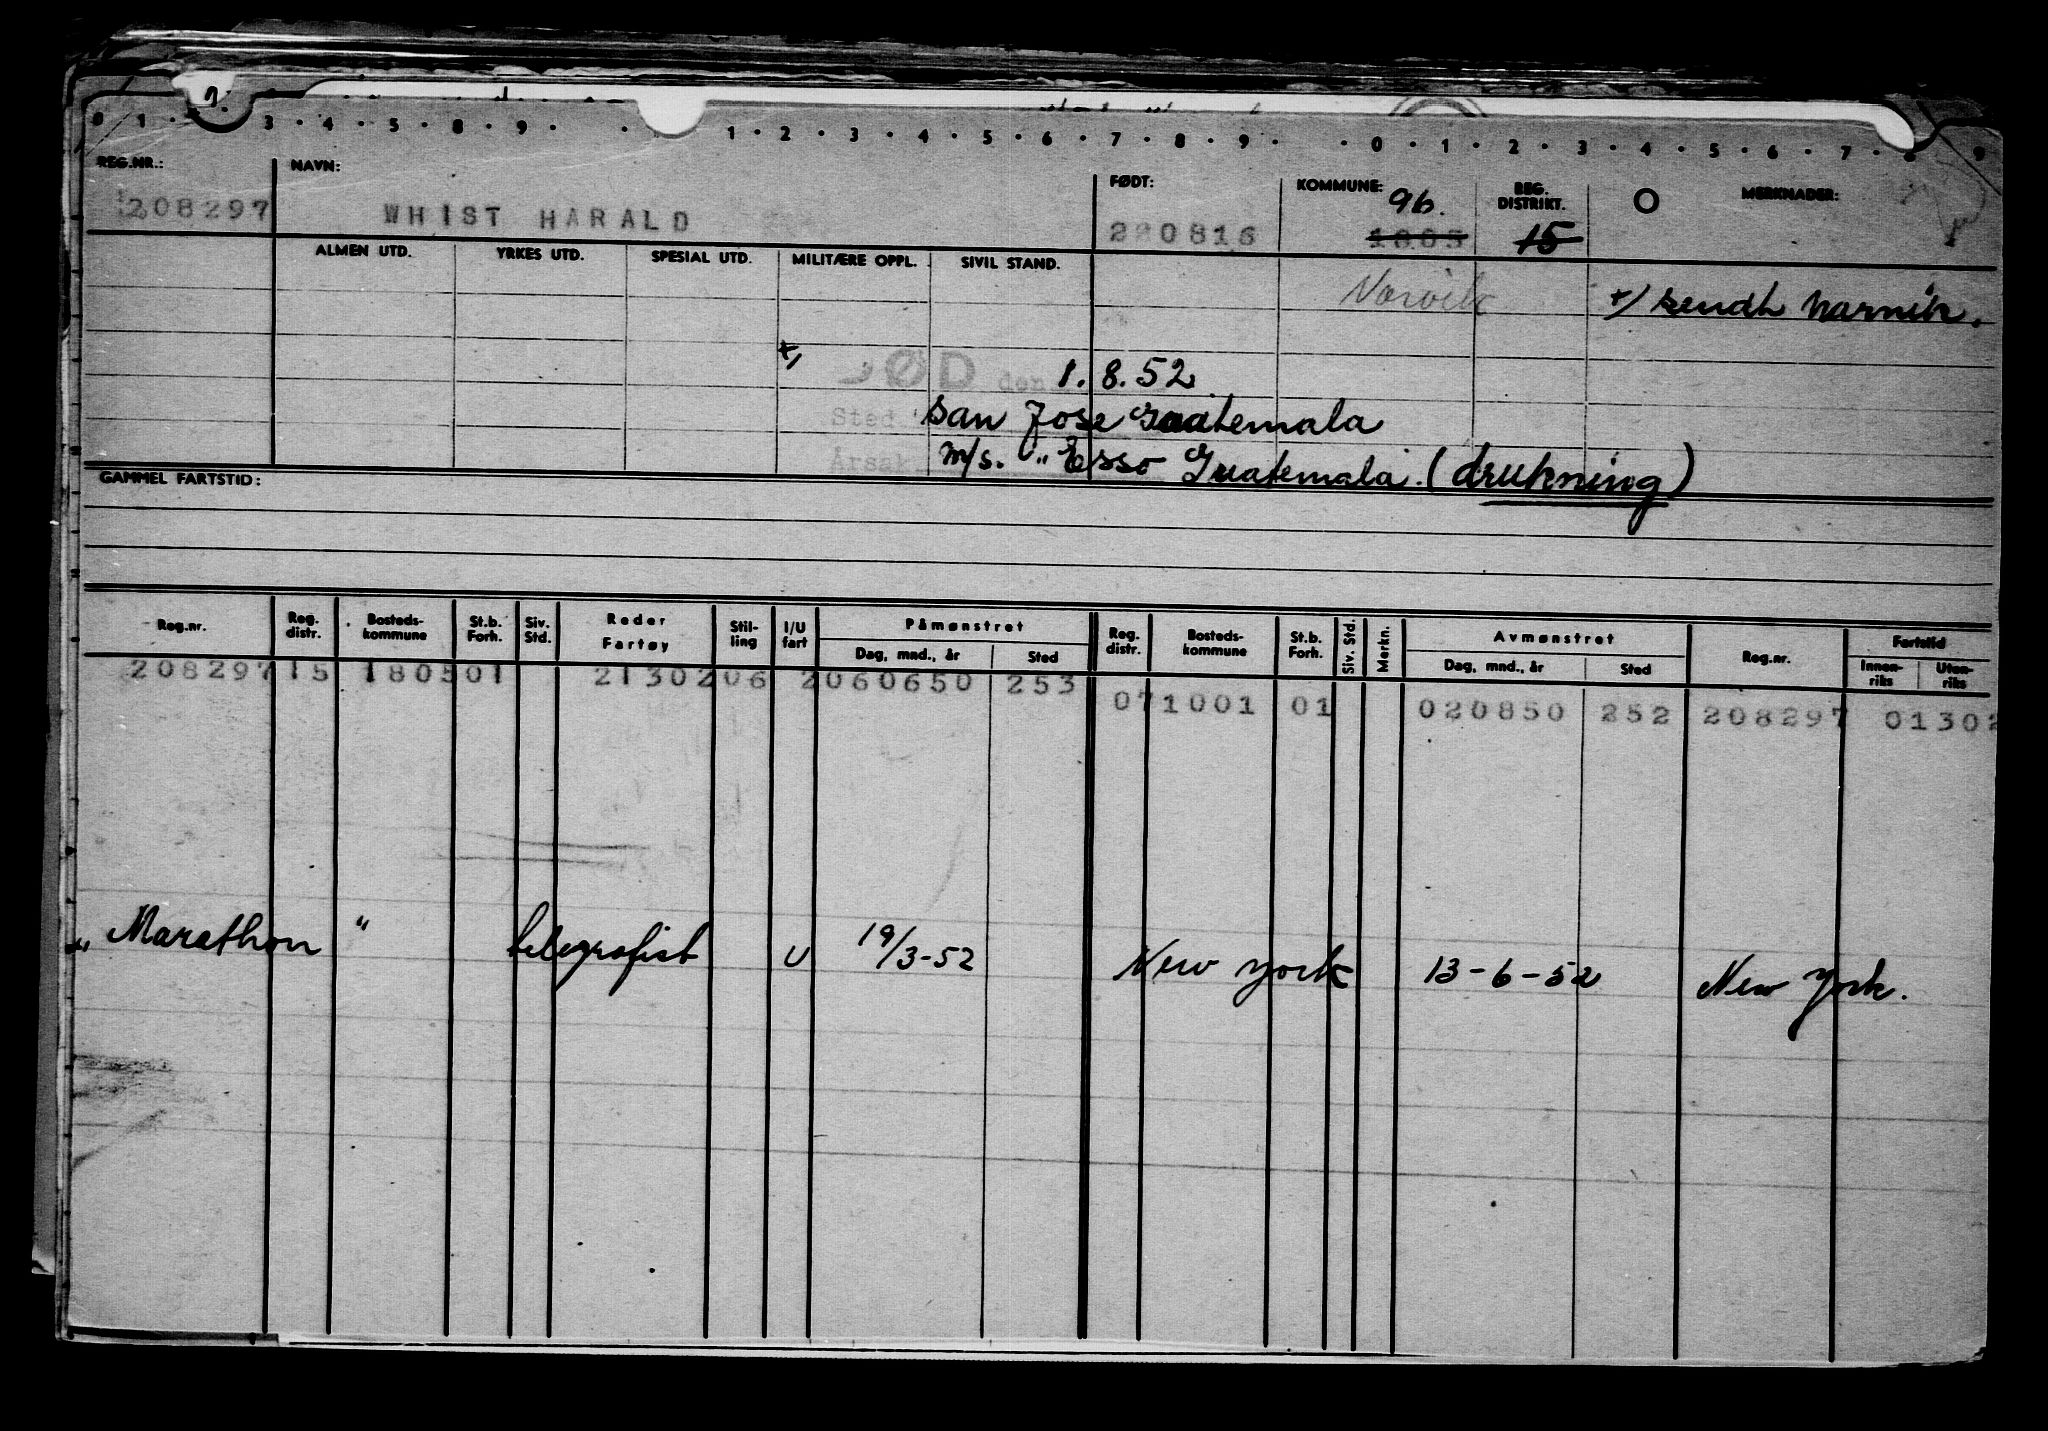 0 1 3 4 5 8 9 1 2 3 4 5 6 7 8 9 0 1 2 3 4 5 6 7 8 9
REG.NR.: NAVN: FØDT: KOMMUNE: 96. REG. DISTRIKT. MERKNADER:
208297 WHIST HARALD 220816 1805 15
ALMEN UTD. YRKES UTD. SPESIAL UTD. MILITÆRE OPPL. SIVIL STAND.
Narvik +/ sendt Narvik.
+/ DØD den 1.8.52
Sted San Jose Guatemala
Årsak m/s. "Esso Guatemala. (drukning)
GAMMEL FARTSTID:
Reg.nr. Reg. distr. Bosteds-kommune St.b. Forh. Siv. Std. Reder Fartøy Stil-ling I/U fart Påmønstret Dag, mnd., år Sted Reg. distr. Bosteds-kommune St.b. Forh. Siv. Std. Merkn. Avmønstret Dag, mnd., år Sted Reg.nr. Fartstid Innen-riks Uten-riks
208297 15 1805 01 2130206 2060650 253
07 1001 01 020850 252 208297 01302
"Marathon" telegrafist U 19/3-52 New York 13-6-52 New York.